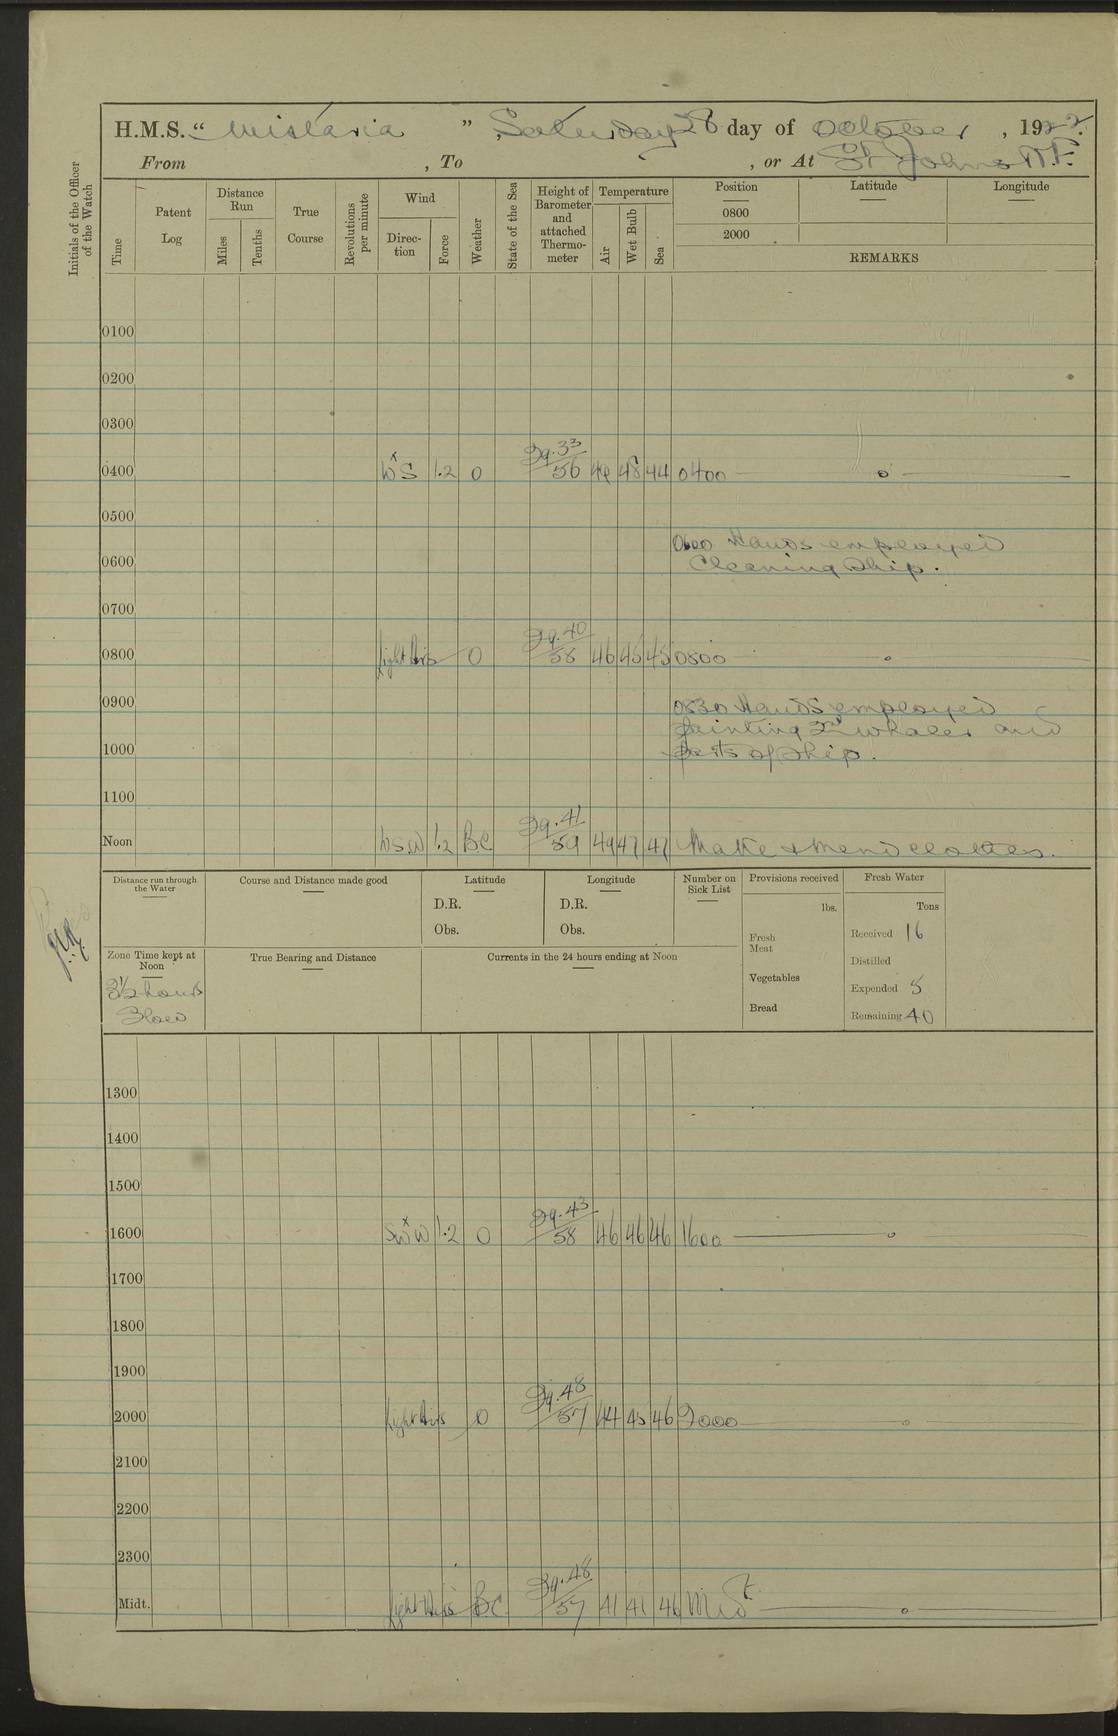 H.M.S. “ Wistaria ” , Saturday 28 day of October , 1922.
From , To , or At St Johns N.F.
Initials of the Officer of the Watch
Time
Patent Log
Distance Run
Miles
Tenths
True Course
Revolutions per minute
Wind
Direc- tion
Force
Weather
State of the Sea
Height of Barometer and attached Thermo- meter
Temperature
Air
Wet Bulb
Sea
Position
Latitude
Longitude
0800
2000
REMARKS
0100
0200
0300
0400 WxS 1.2 0 29.33/56 49 48 44 0400
0500
0600 Hands employed
0600 Cleaning Ship.
0700
0800 Light Airs 0 29.40/58 46 45 45 0800
0830 Hands employed
0900
painting 2nd whaler and
1000 parts of Ship.
1100
Noon WSW 1.2 B.C. 29.41/59 49 47 47 Make & mend clothes.
Distance run through the Water
Course and Distance made good
Latitude
D.R.
Obs.
Longitude
D.R.
Obs.
Number on Sick List
Provisions received
lbs.
Fresh Meat
Vegetables
Bread
Fresh Water
Tons
Received 16
Distilled
Expended 5
Remaining 40
Zone Time kept at Noon
3½ hours
Slow
True Bearing and Distance
Currents in the 24 hours ending at Noon
1300
1400
1500
1600 SWxW 1.2 0 29.43/58 46 46 46 1600
1700
1800
1900
2000 Light Airs 0 29.48/57 44 45 46 2000
2100
2200
2300
Midt. Light Airs BC 29.48/57 41 41 46 Midt